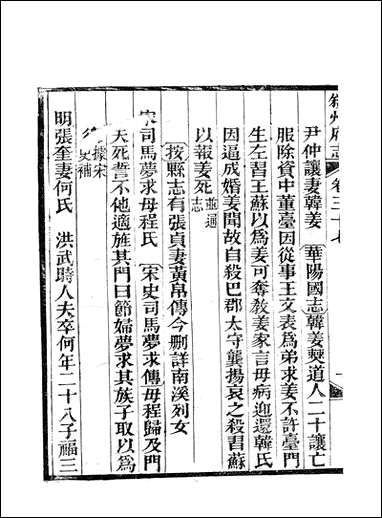 敘州府志 卷三十七 一
尹仲讓妻韓姜 華陽國志韓姜僰道人二十讓亡
服除資中董臺因從事王文表為弟求姜不許臺門
生左習王蘇以為姜可奪教姜家言母病迎還韓氏
因逼成婚姜聞故自殺巴郡太守龔揚哀之殺習蘇
以報姜死 並通志
按縣志有張貞妻黃帛傳今刪詳南溪列女
宋司馬夢求母程氏 宋史司馬夢求傳母程歸及門
夫死誓不他適旌其門曰節婦夢求其族子取以為
後 據宋史補
明張奎妻何氏 洪武時人夫卒何年二十八子福三